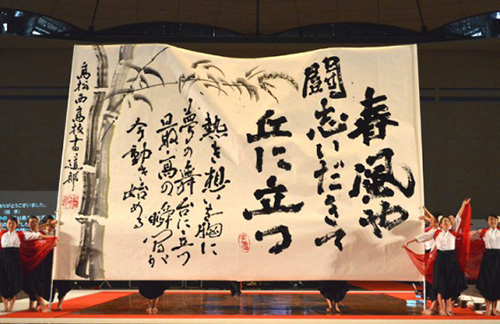 春風や
闘志いだきて
丘に立つ
熱き想いを胸に
夢の舞台に立つ
最高の瞬間が
今動き始める
高松西高校書道部
りがとうございました。